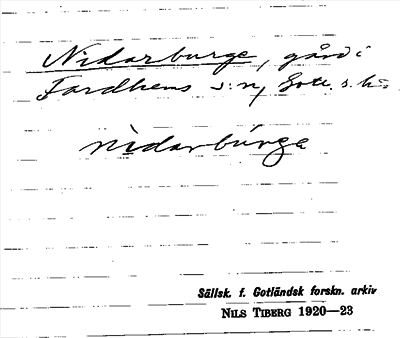 Nidarburge, gård i
Fardhems s:n, Gotl. s. hd.
nìdarbúrgε
Sällsk. f. Gotländsk forskn. arkiv
NILS TIBERG 1920—23